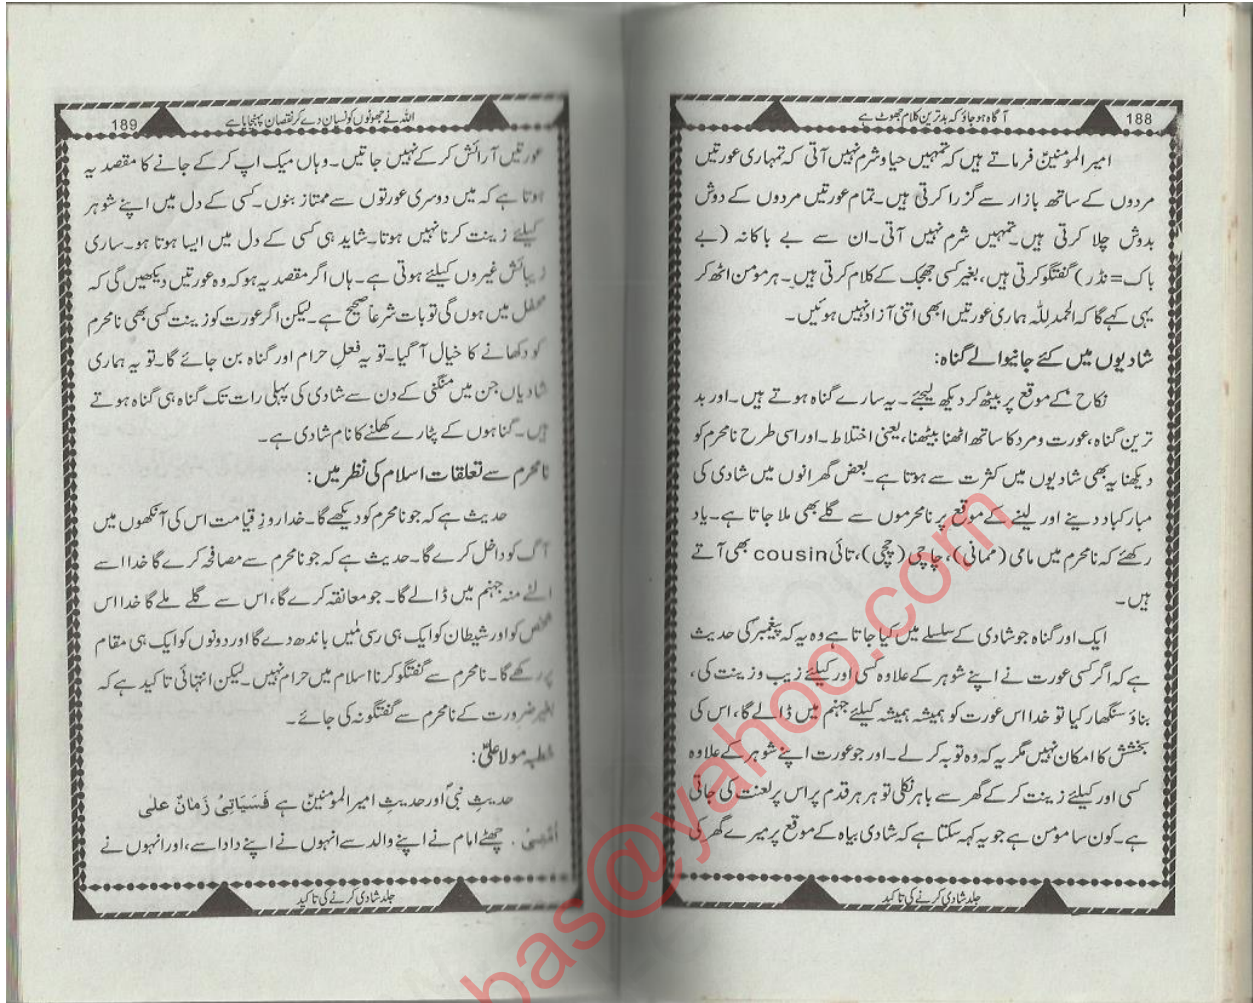 188
آگاہ ہو جاؤ کہ بدترین کلام جھوٹ ہے
امیرالمؤمنینؑ فرماتے ہیں کہ تمہیں حیا و شرم نہیں آتی کہ تمہاری عورتیں
مردوں کے ساتھ بازار سے گزرا کرتی ہیں۔ تمام عورتیں مردوں کے دوش
بدوش چلا کرتی ہیں۔ تمہیں شرم نہیں آتی۔ ان سے بے باکانہ (بے
باک = نڈر) گفتگو کرتی ہیں، بغیر کسی جھجک کے کلام کرتی ہیں۔ ہر مؤمن اٹھ کر
یہی کہے گا کہ الحمدللہ ہماری عورتیں ابھی اتنی آزاد نہیں ہوئیں۔
شادیوں میں کئے جانیوالے گناہ:
نکاح کے موقع پر بیٹھ کر دیکھ لیجئے۔ یہ سارے گناہ ہوتے ہیں۔ اور بد
ترین گناہ، عورت و مرد کا ساتھ اٹھنا بیٹھنا، یعنی اختلاط۔ اور اسی طرح نامحرم کو
دیکھنا یہ بھی شادیوں میں کثرت سے ہوتا ہے۔ بعض گھرانوں میں شادی کی
مبارکباد دینے اور لینے کے موقع پر نامحرموں سے گلے بھی ملا جاتا ہے۔ یاد
رکھئے کہ نامحرم میں مامی (ممانی)، چاچی (چچی)، تائی cousin بھی آتے
ہیں۔
ایک اور گناہ جو شادی کے سلسلے میں کیا جاتا ہے وہ یہ کہ پیغمبرؐ کی حدیث
ہے کہ اگر کسی عورت نے اپنے شوہر کے علاوہ کسی اور کیلئے زیب و زینت کی،
بناؤ سنگھار کیا تو خدا اس عورت کو ہمیشہ ہمیشہ کیلئے جہنم میں ڈالے گا، اس کی
بخشش کا امکان نہیں مگر یہ کہ وہ توبہ کر لے۔ اور جو عورت اپنے شوہر کے علاوہ
کسی اور کیلئے زینت کر کے گھر سے باہر نکلی تو ہر ہر قدم پر اس پر لعنت کی جاتی
ہے۔ کون سا مؤمن ہے جو یہ کہہ سکتا ہے کہ شادی بیاہ کے موقع پر میرے گھر کی
جلد شادی کرنے کی تاکید
189
اللہ نے جھوٹوں کو نسیان دے کر نقصان پہنچایا ہے
عورتیں آرائش کر کے نہیں جاتیں۔ وہاں میک اپ کر کے جانے کا مقصد یہ
ہوتا ہے کہ میں دوسری عورتوں سے ممتاز بنوں۔ کسی کے دل میں اپنے شوہر
کیلئے زینت کرنا نہیں ہوتا۔ شاید ہی کسی کے دل میں ایسا ہوتا ہو۔ ساری
زیبائش غیروں کیلئے ہوتی ہے۔ ہاں اگر مقصد یہ ہو کہ وہ عورتیں دیکھیں گی کہ
محفل میں ہوں گی تو بات شرعاً صحیح ہے۔ لیکن اگر عورت کو زینت کسی بھی نامحرم
کو دکھانے کا خیال آ گیا۔ تو یہ فعلِ حرام اور گناہ بن جائے گا۔ تو یہ ہماری
شادیاں جن میں منگنی کے دن سے شادی کی پہلی رات تک گناہ ہی گناہ ہوتے
ہیں۔ گناہوں کے پٹارے کھلنے کا نام شادی ہے۔
نامحرم سے تعلقات اسلام کی نظر میں:
حدیث ہے کہ جو نامحرم کو دیکھے گا۔ خدا روزِ قیامت اس کی آنکھوں میں
آگ کو داخل کرے گا۔ حدیث ہے کہ جو نامحرم سے مصافحہ کرے گا خدا اسے
الٹے منہ جہنم میں ڈالے گا۔ جو معانقہ کرے گا، اس سے گلے ملے گا خدا اس
شخص کو اور شیطان کو ایک ہی رسی میں باندھ دے گا اور دونوں کو ایک ہی مقام
پر رکھے گا۔ نامحرم سے گفتگو کرنا اسلام میں حرام نہیں۔ لیکن انتہائی تاکید ہے کہ
بغیر ضرورت کے نامحرم سے گفتگو نہ کی جائے۔
خطبہ مولا علیؑ:
حدیثِ نبیؐ اور حدیثِ امیرالمؤمنینؑ ہے فَسَيَاتِىْ زَمَانٌ عَلٰى
اُمَّتِىْ۔ چھٹے امام نے اپنے والد سے انہوں نے اپنے دادا سے، اور انہوں نے
جلد شادی کرنے کی تاکید
bas@yahoo.com